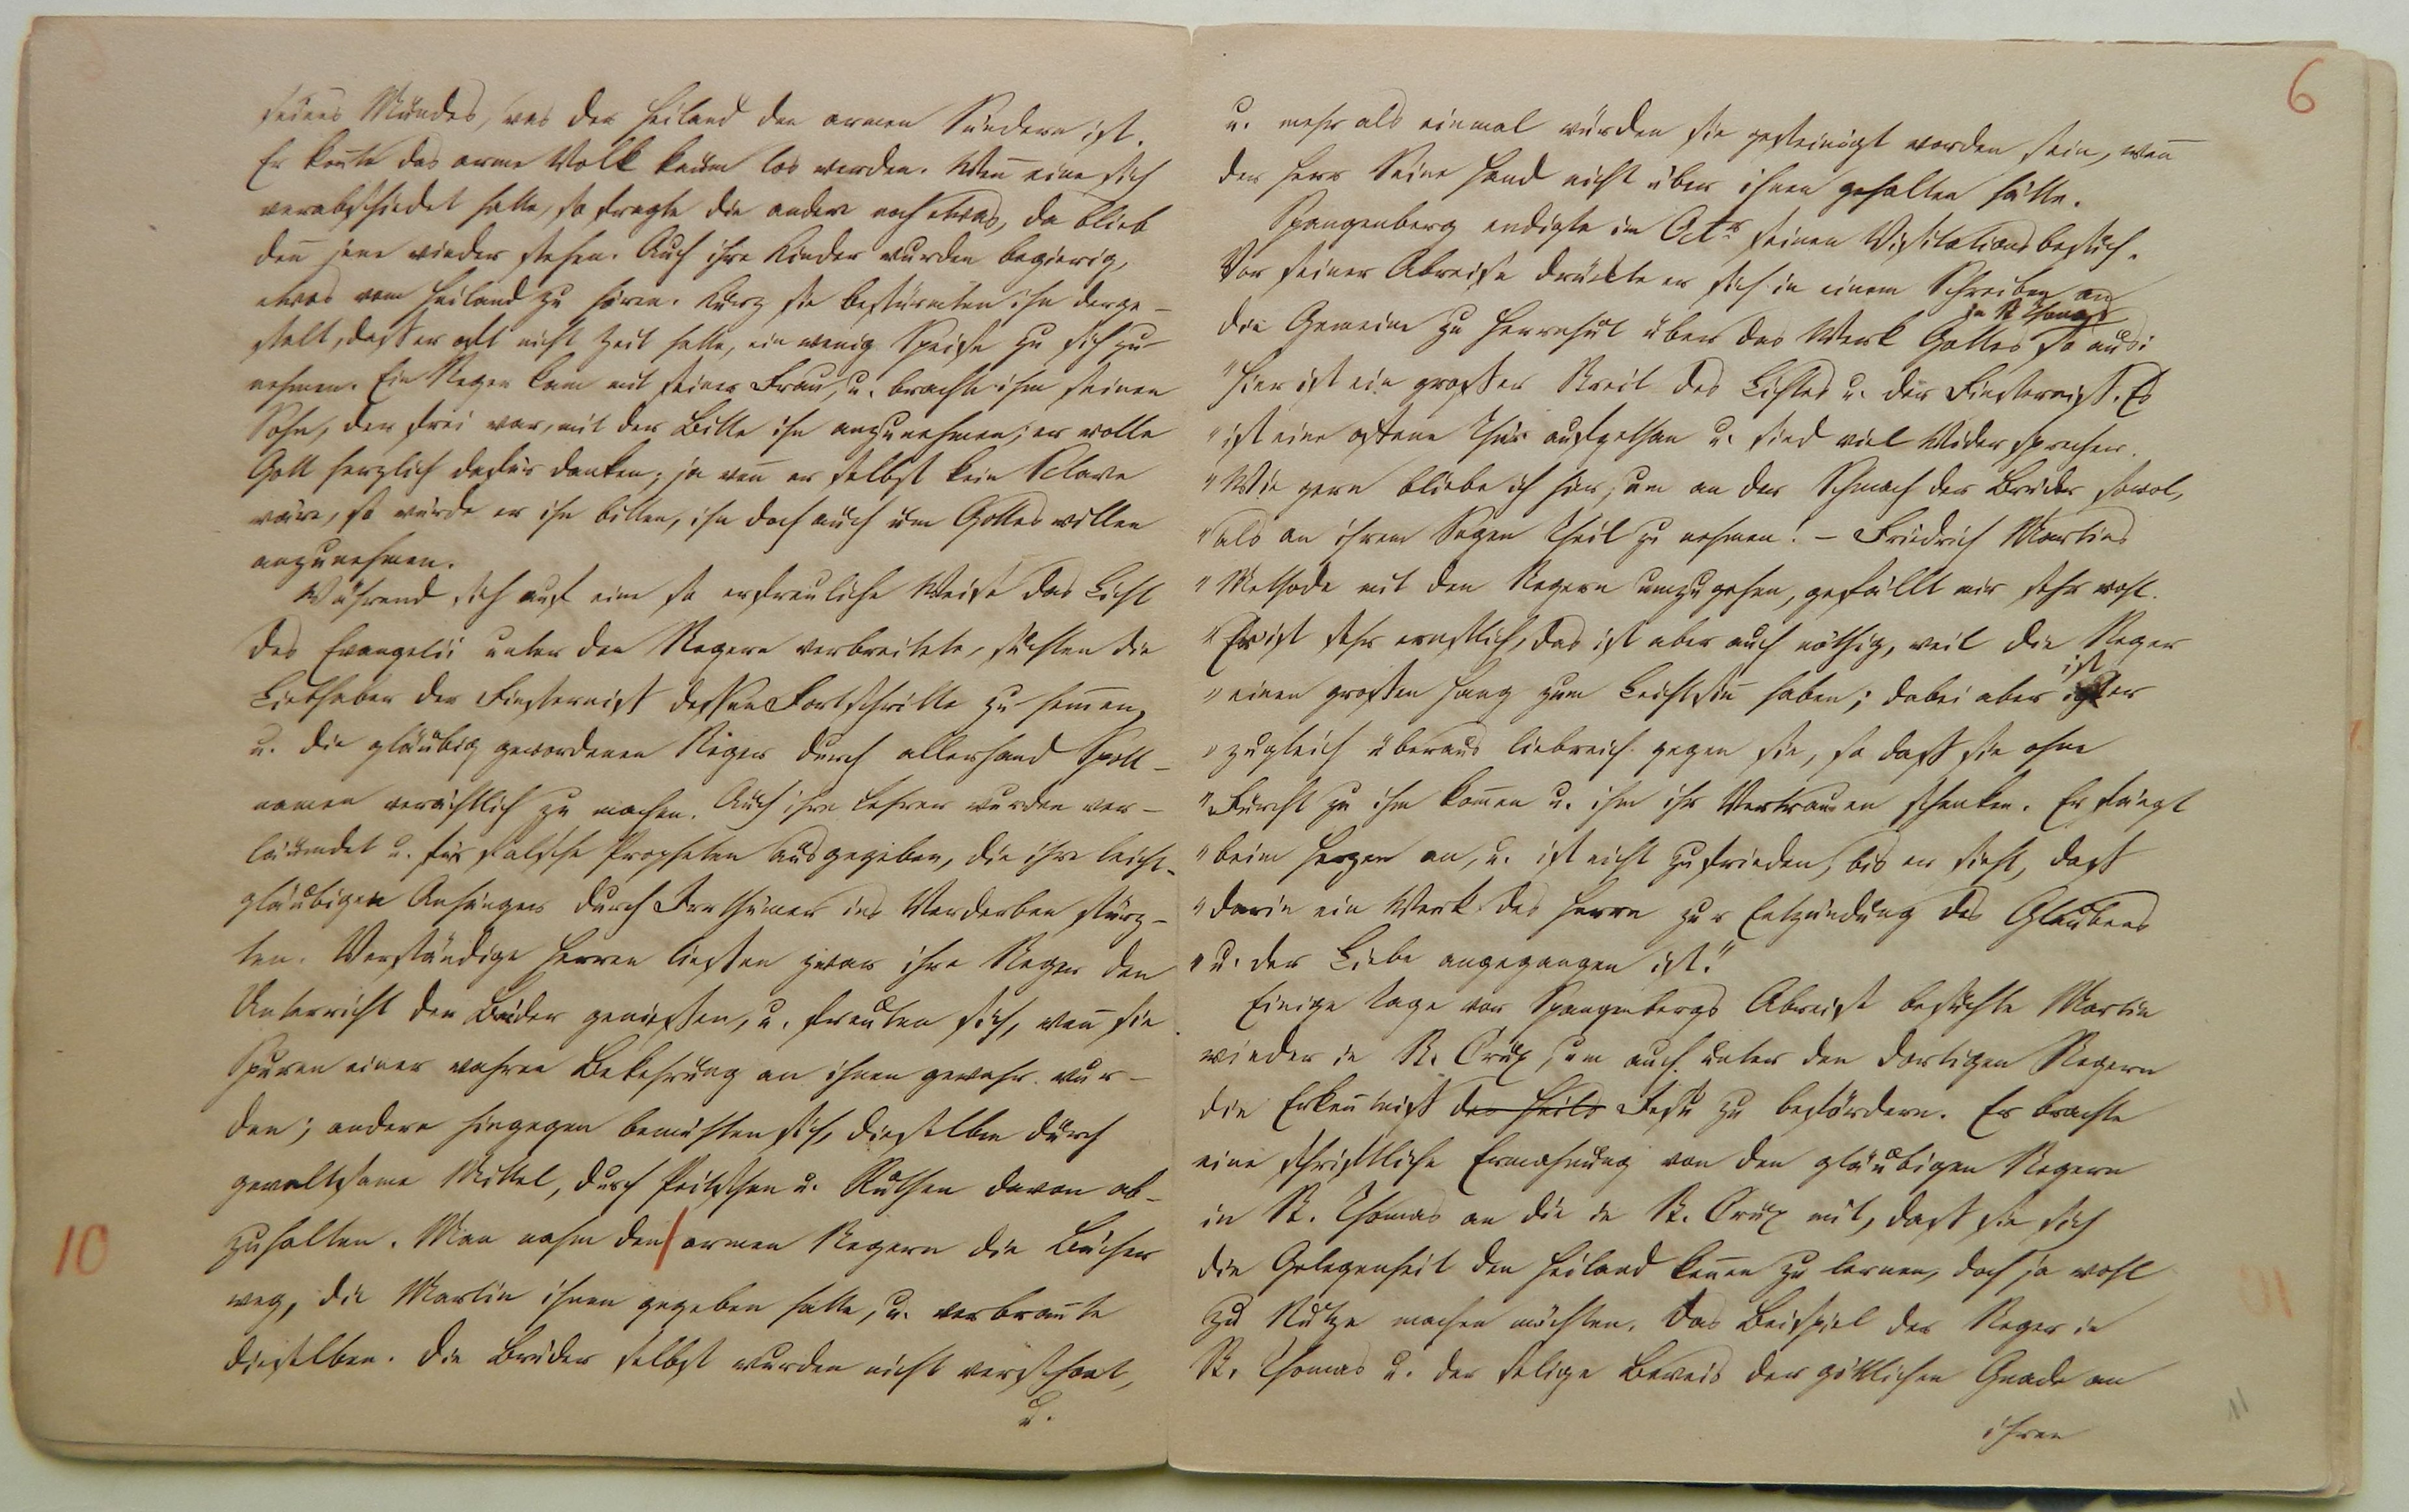 seines Mundes, was der Heiland den armen Sündern ist.
Er koñte das arme Volk kaum los werden. Weñ eine sich
verabschiedet hatte, so fragte die andere noch etwas, da blieb
deñ jene wieder stehen. Auch ihre Kinder wurden begierig,
etwas vom Heiland zu hören. Kurz sie bestürmten ihn derge-
stalt, dass er oft nicht Zeit hatte, ein wenig Speise zu sich zu
nehmen. Ein Neger kam mit seiner Frau, u. brachte ihm seinen
Sohn, der frei war, mit der Bitte ihn anzunehmen; er wolle
Gott herzlich dafür danken; ja weñ er selbst kein Sclave
wäre, so würde er ihn bitten, ihn doch auch um Gottes willen
anzunehmen.
Während sich auf eine so erfreuliche Weise das Licht
des Evangelii unter den Negern verbreitete, suchten die
Liebhaber der Finsterniss dessen Fortschritte zu hem̃en,
u. die gläubig gewordenen Neger durch allerhand Spott-
namen verächtlich zu machen. Auch ihre Lehrer wurden ver-
läumdet u. für falsche Propheten ausgegeben, die ihre leicht-
gläubigen Anhänger durch Irrthümer ins Verderben stürz-
ten. Verständige Herren liessen zwar ihre Neger den
Unterricht der Brüder geniessen, u. freuten sich, weñ sie
Spuren einer wahren Bekehrung an ihnen gewahr wur-
den; andere hingegen bemühten sich, dieselben durch
gewaltsame Mittel, durch Peitschen u. Ruthen davon ab-
10
zuhalten. Man nahm den armen Negern die Bücher
weg, die Martin ihnen gegeben hatte, u. verbrañte
dieselben. Die Brüder selbst wurden nicht verschont,
u.
6
u. mehr als einmal würden sie gesteinigt worden sein, weñ
der Herr Seine Hand nicht über ihnen gehalten hätte.
Spangenberg endigte im Octr seinen Visitationsbesuch.
Vor seiner Abreise drückte er sich in einem Schreiben an
in St Thomas
die Gemeine zu Herrnhut über das Werk Gottes so aus:
"Hier ist ein grosser Streit des Lichtes u. der Finsterniss. Es
"ist eine offene Thür aufgethan u. sind viel Widersprecher.
"Wie gern bliebe ich hier, um an der Schmach der Brüder sowol,
"als an ihrem Segen Theil zu nehmen! – Friedrich Martins
"Methode mit den Negern umzugehen, gefällt mir sehr wohl.
"Er ist sehr ernstlich, das ist aber auch nöthig, weil die Neger
ist
"einen grossen Hang zum Leichtsiñ haben; dabei aber er
"zugleich überaus liebreich gegen sie, so dass sie ohne
"Furcht zu ihm kom̃en u. ihm ihr Vertrauen schenken. Er fängt
"beim Herzen an, u. ist nicht zufrieden, bis er sieht, dass
"darin ein Werk des Herrn zur Entzündung des Glaubens
"u. der Liebe angegangen ist."
Einige Tage vor Spangenbergs Abreise besuchte Martin
wieder in St. Crux, um auch unter den dortigen Negern
die Erkeñtniss des Heils Jesu zu befördern. Er brachte
eine schriftliche Ermahnung von den gläubigen Negern
in St. Thomas an die in St. Crux mit, dass sie sich
die Gelegenheit den Heiland keñen zu lernen, doch ja wohl
zu Nutze machen möchten. Das Beispiel der Neger in
St. Thomas u. der selige Beweis der göttlichen Gnade an
11
ihren